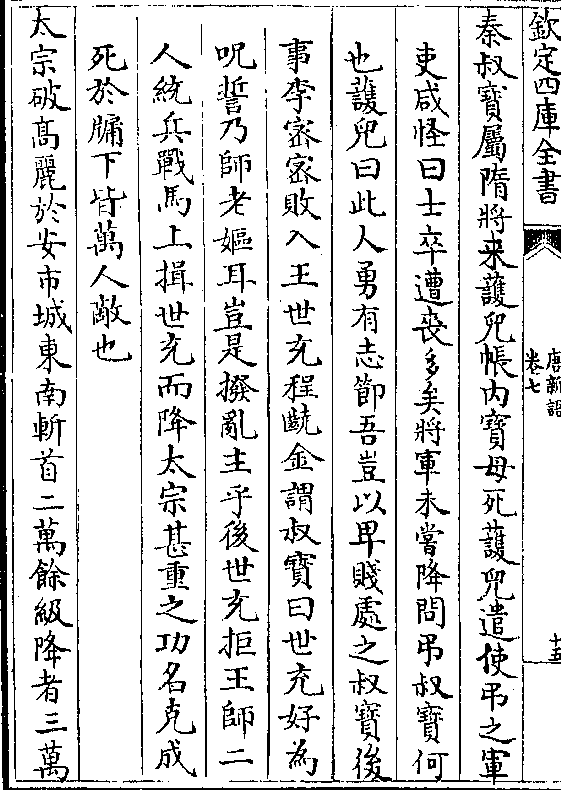 欽定四庫全書
唐新語
卷七
十五
秦叔寶屬隋將来䕶兒帳内寶母死䕶兒遣使弔之軍
吏咸怪曰士卒遭喪多矣將軍未嘗降問弔叔寶何
也䕶兒曰此人勇有志節吾豈以卑賤處之叔寶後
事李宻宻敗入王世充程齩金謂叔寶曰世充好為
呪誓乃師老嫗耳豈是撥亂主乎後世充拒王師二
人統兵戰馬上揖世充而降太宗甚重之功名克成
死於牖下皆萬人敵也
太宗破髙麗於安市城東南斬首二萬餘級降者三萬